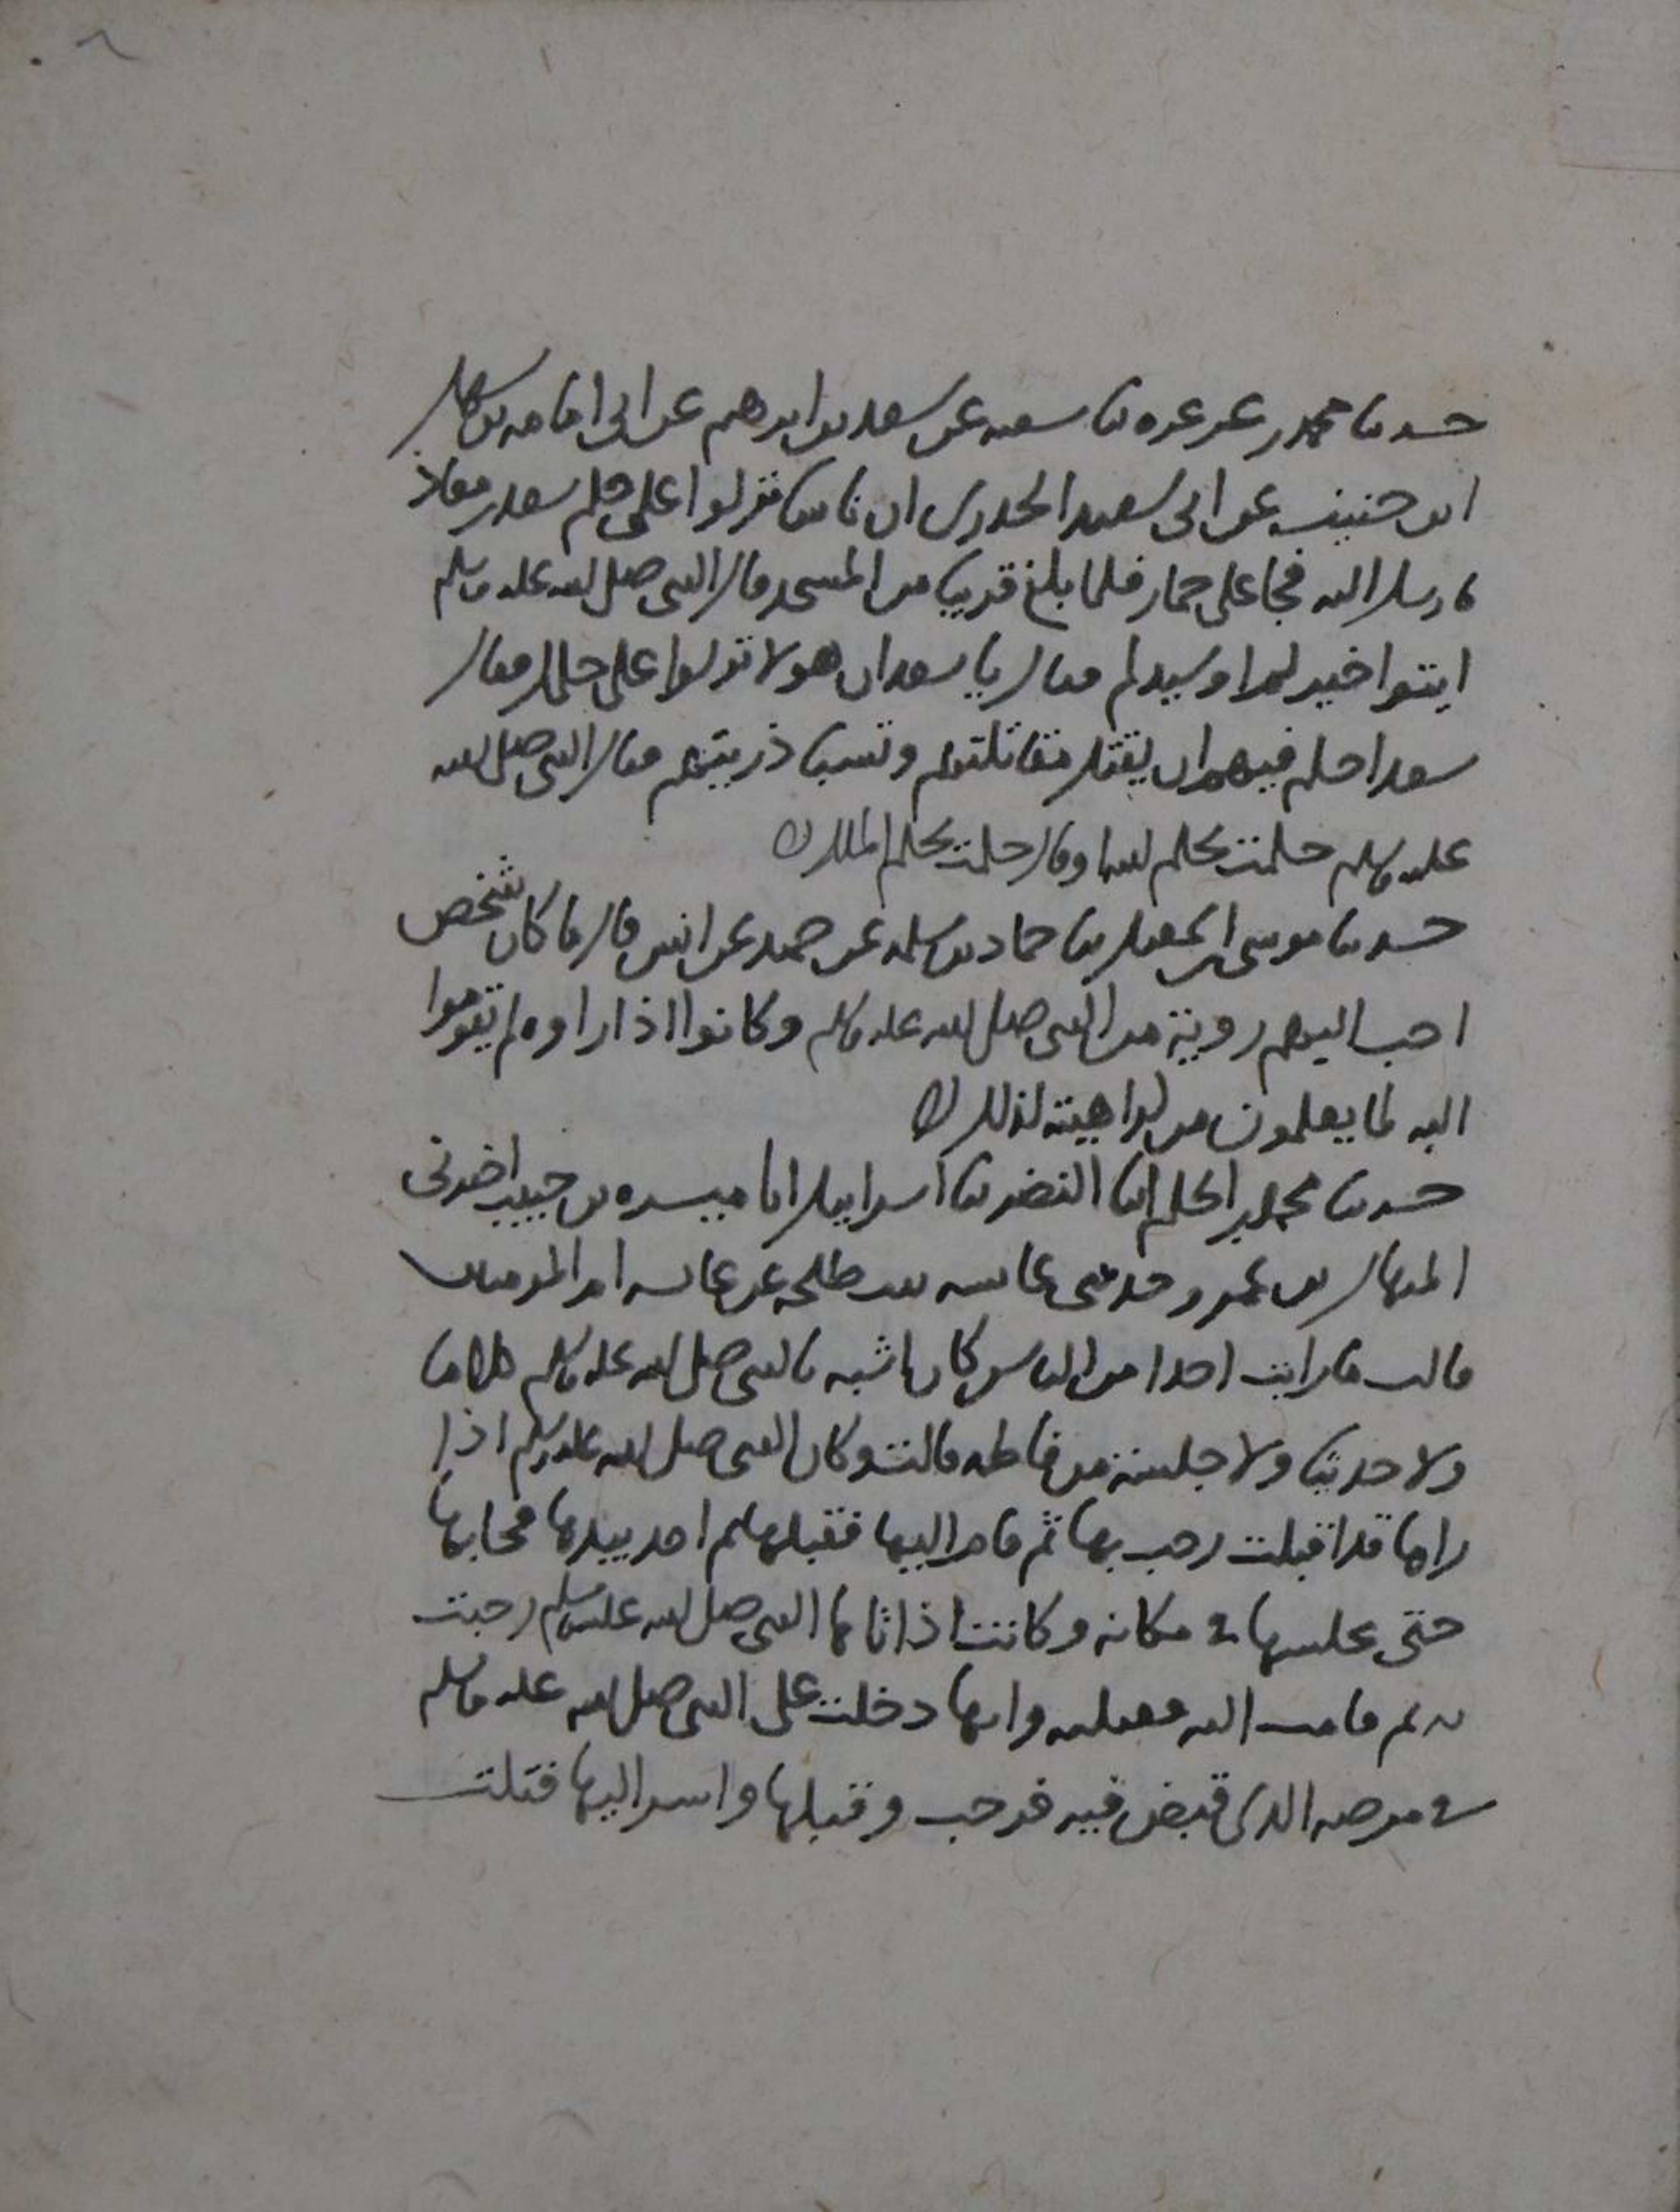 حدثنا محمد بن عرعره ثنا شعبه عن سعد بن ابرهيم عن ابى امامه بن سهل
ابن حنيف عن ابى سعيد الخدرى ان ناسا نزلوا على حكم سعد بن معاذ
فارسل اليه فجا على حمار فلما بلغ قريبا من المسجد قال النبى صلى الله عليه وسلم
ايتوا خيركم او سيدكم فقال يا سعد ان هولا نزلوا على حكمك فقال
سعد احكم فيهم ان يقتل مقاتلتهم وتسبا ذريتهم فقال النبى صلى الله
عليه وسلم حكمت بحكم الله او قال حكمت بحكم الملك
حدثنا موسى بن اسمعيل ثنا حماد بن سلمه عن حميد عن انس قال ما كان شخص
احب اليهم روية من النبى صلى الله عليه وسلم وكانوا اذا راوه لم يقوموا
اليه لما يعلمون من كراهيته لذلك
حدثنا محمد بن الحكم انا النضر ثنا اسراييل انا ميسره بن حبيب اخبرنى
المنهال بن عمرو حدثنى عايشه بنت طلحه عن عايشه ام المومنين
قالت ما رايت احدا من الناس كان اشبه بالنبى صلى الله عليه وسلم كلاما
ولا حديثا ولا جلسة من فاطمه قالت وكان النبى صلى الله عليه وسلم اذا
راها قد اقبلت رحب بها ثم قام اليها فقبلها ثم اخذ بيدها فجا بها
حتى يجلسها فى مكانه وكانت اذا اتاها النبى صلى الله عليه وسلم رحبت
به ثم قامت اليه فقبلته وانها دخلت على النبى صلى الله عليه وسلم
فى مرضه الذى قبض فيه فرحب وقبلها واسر اليها فبكت